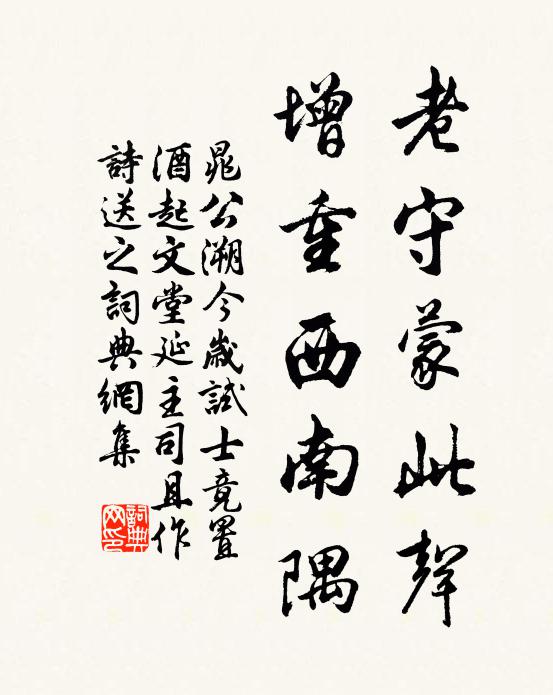 老守蒙此聲
增重西南隅
晁公溯今歲試士竟置
酒起文堂延主司且作
詩送之詞典網集
詞典
网印